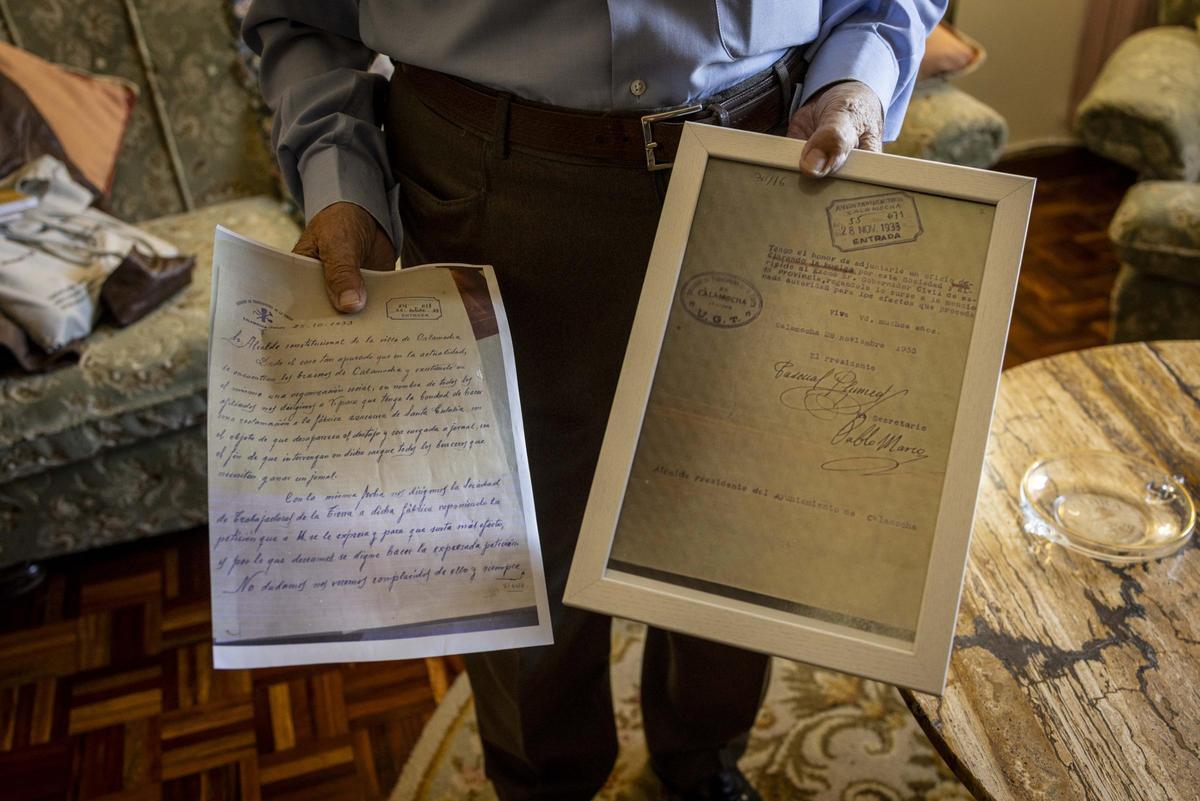 25-10-1933
ENTRADA
Alcalde constitucional de la villa de Calamocha
Dado el caso tan apurado que en la actualidad,
se encuentran los braceros de Calamocha y existiendo en
el mismo una organización social, en nombre de todos los
afiliados nos dirigimos a V. para que tenga la bondad de hacer
una reclamación a la fábrica azucarera de Santa Eulalia, con
el objeto de que desaparezca el destajo y sea cargada a jornal, con
el fin de que intervengan en dicho cargue todos los braceros que
necesiten ganar un jornal.
Con la misma fecha nos dirigimos la Sociedad,
de Trabajadores de la Tierra a dicha fábrica exponiendo la
petición que a V. se le expresa y para que surta más efecto,
y por lo que deseamos se digne hacer la expresada petición.
No dudamos nos veremos complacidos de ello y siempre
30/16
CALAMOCHA
55 671
28 NOV. 1933
ENTRADA
Tengo el honor de adjuntarle un oficio de-
clarando la huelga por esta Sociedad y di-
rigido al Excmo Sr. Gobernador Civil de es-
ta Provincia, rogandole lo curse a la mencio-
nada autoridad para los efectos que proceda
CALAMOCHA
U.G.T.
Viva Vd. muchos años.
Calamocha 28 noviembre 1933
El presidente
Pascual Plumed
secretario
Pablo Marco
Alcalde presidente del Ayuntamiento de Calamocha